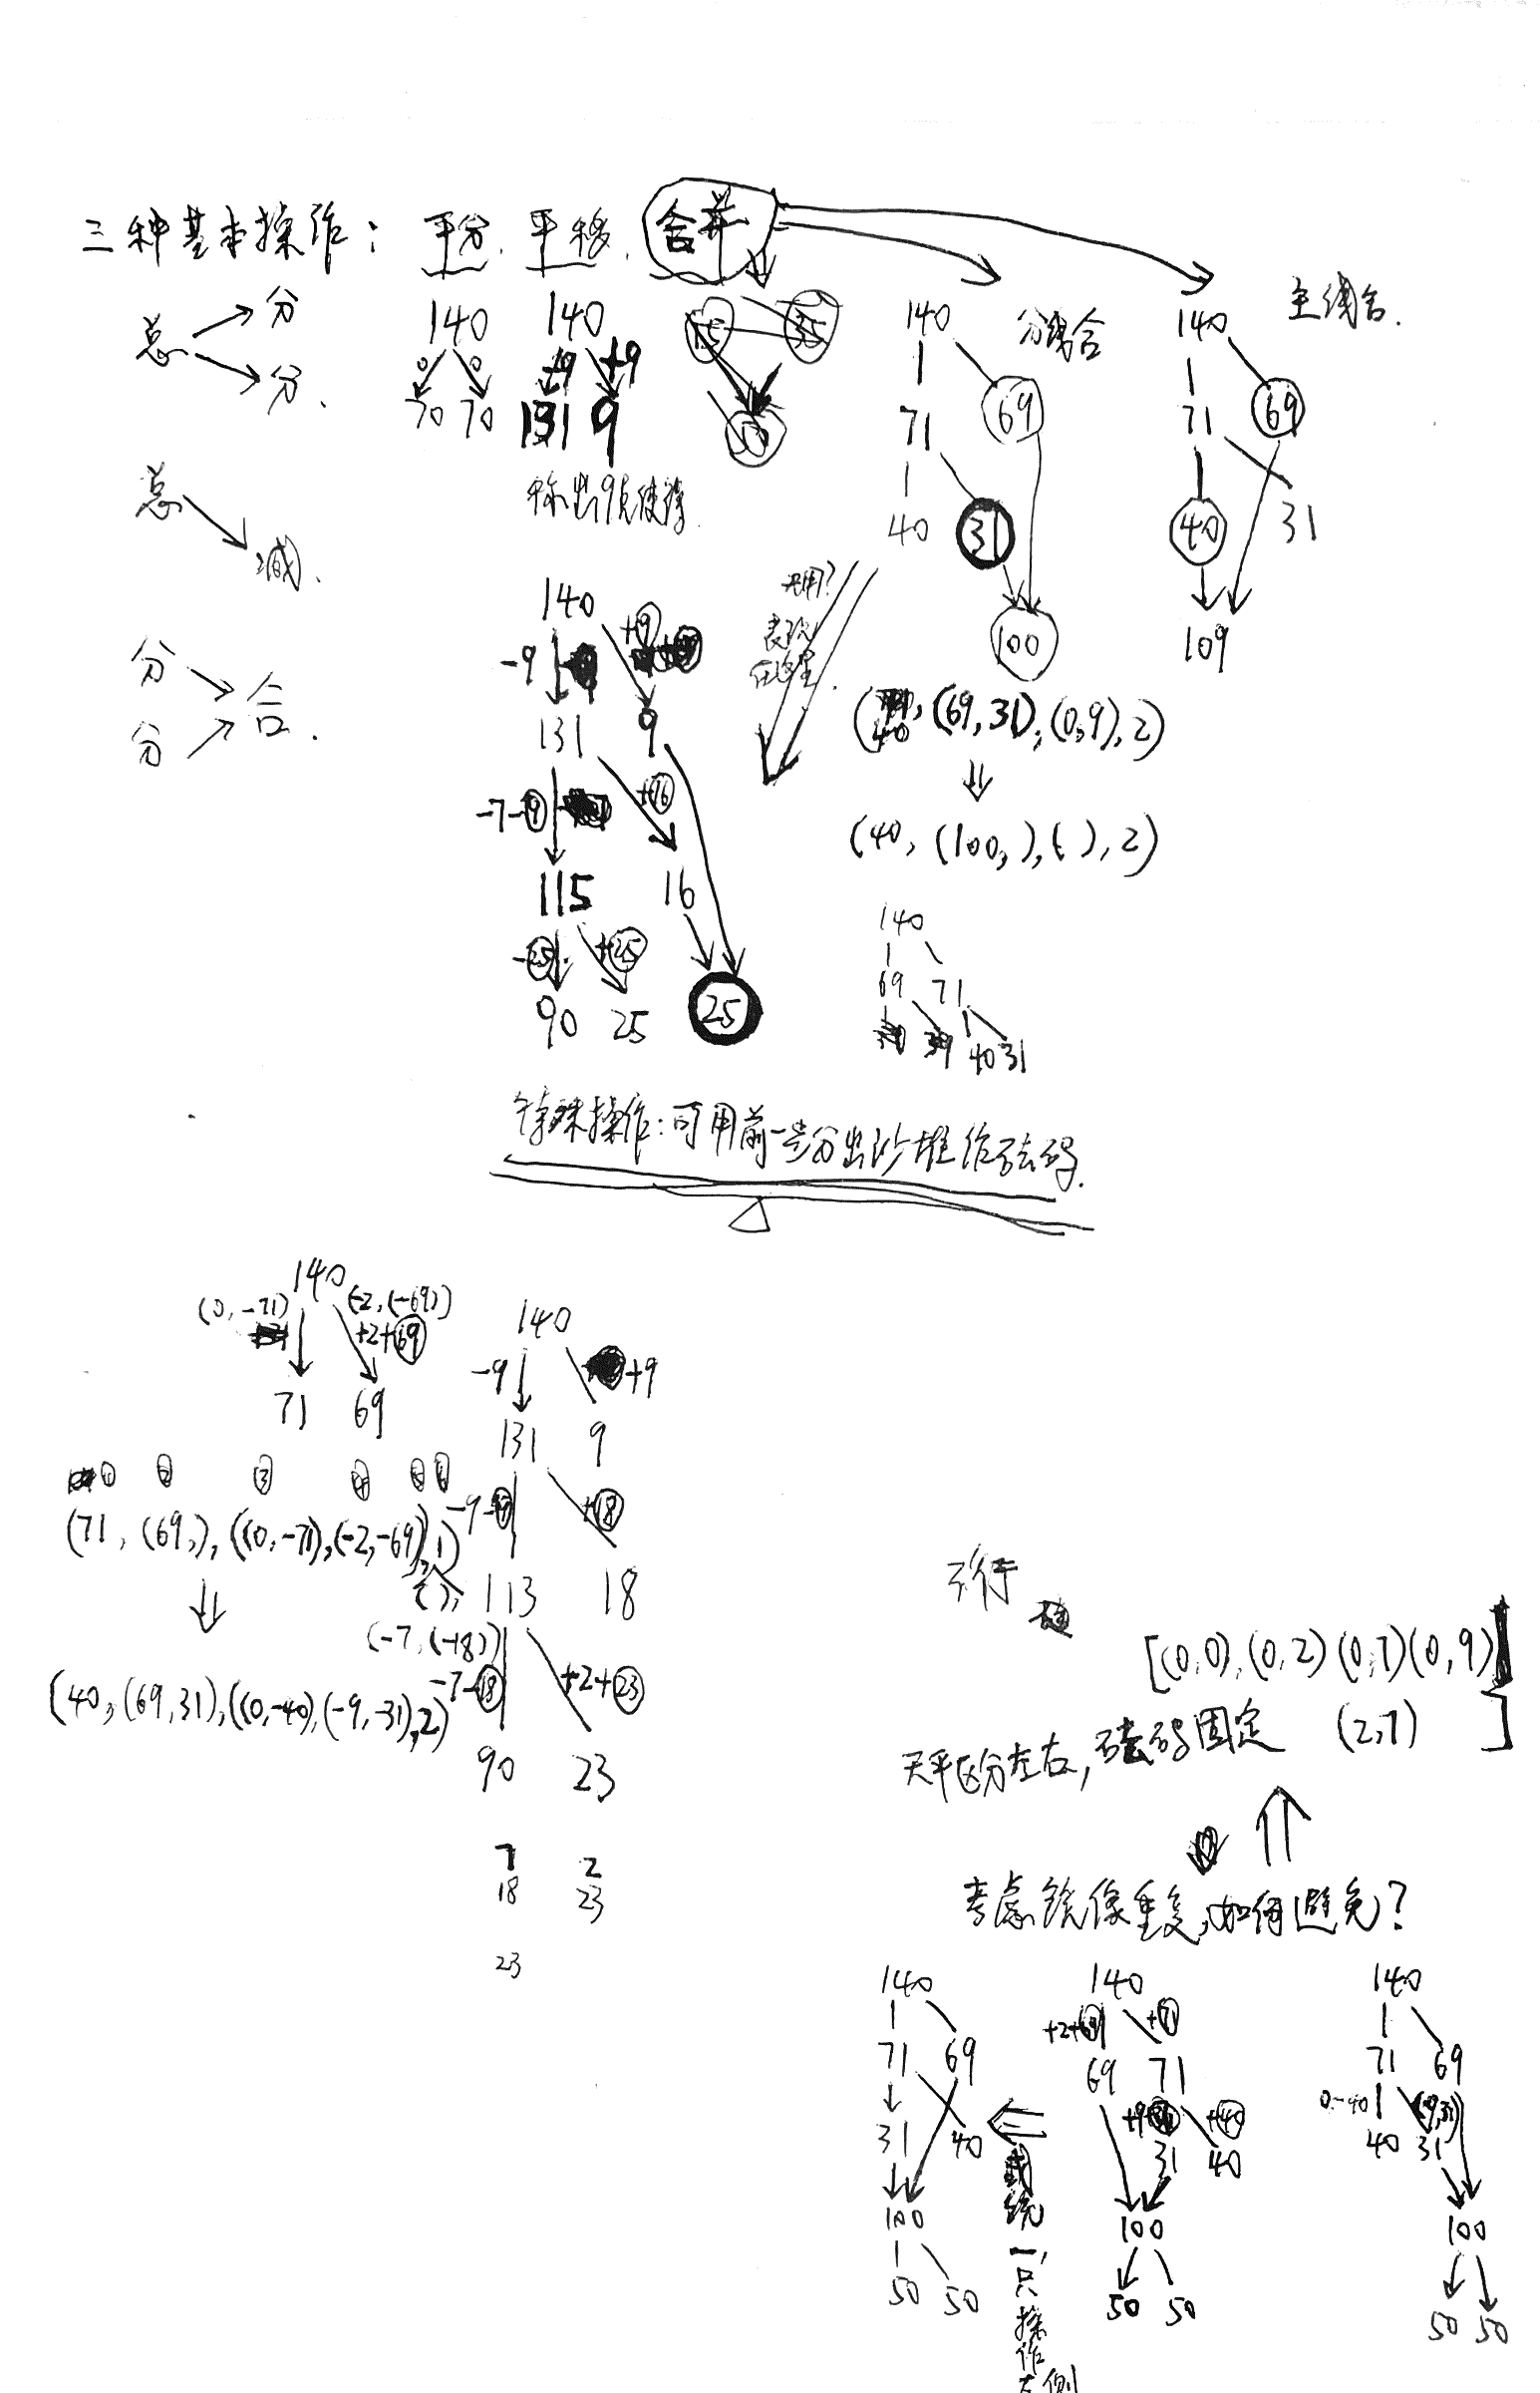 三种基本操作：平分、平移、合并
总 → 分
→ 分.
140
0 0
70 70
140
+9
131 9
称出9克使得
15 35
50
140
71 69
40 31
100
分线合
140
71 69
40 31
109
主线合.
总
减.
分
分 合.
140
-9 +9
131 9
-7-9 +16
115 16
-25 +25
90 25 25
表现
在这里.
(40, (69,31), (0,9), 2)
⇓
(40, (100, ), ( ), 2)
140
69 71
40 31
特殊操作：可用前一步分出沙堆作砝码.
140
(0, -71) (-2, (-69))
+2+69
71 69
① ② ③ ④ ⑤ ⑥
(71, (69,), ((0,-71), (-2,-69)), 1)
⇓
(40, (69,31), ((0,-40), (-9,-31)), 2)
140
-9 +9
131 9
-9 +18
113 18
(-7, (-18))
-7-18 +2+23
90 23
7 2
18 23
23
不行
[(0,0), (0,2) (0,7) (0,9)
(2,7) ]
天平区分左右, 砝码固定
⇑
考虑镜像重复, 如何避免?
140
71 69
31 40
100
50 50
或统一, 只操作左侧
140
+2+69 +71
69 71
+9+31 +40
31 40
100
50 50
140
71 69
0.-40 (9,31)
40 31
100
50 50